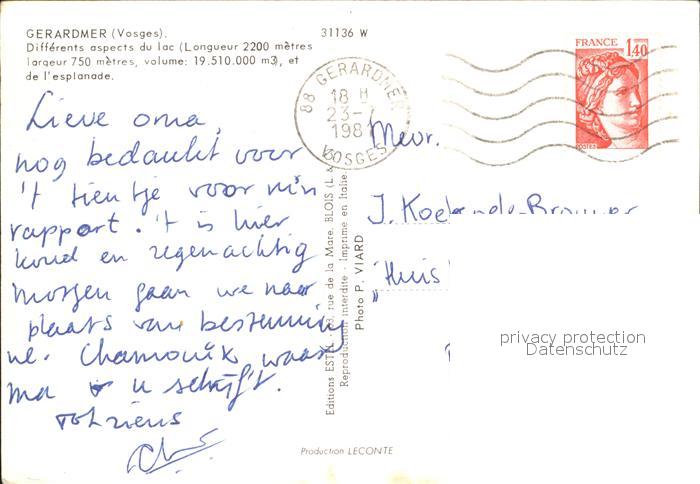 GERARDMER (Vosges).
Différents aspects du lac (Longueur 2200 mètres
largeur 750 mètres, volume: 19.510.000 m3), et
de l'esplanade.
31136 W
88 GERARDMER
18 H
23-
198
VOSGES
FRANCE
1,40
POSTES
Lieve oma,
nog bedankt voor
't tientje voor m'n
rapport. 't is hier
koud en regenachtig
morgen gaan we naar
plaats van bestemmin
nl. Chamonix waar
ma u schrijft.
Tot ziens
Mevr.
J. Koe
"Huis
Editions EST rue de la Mare. BLOIS (L &
Reproduction interdite - Imprimé en Italie
Photo P. VIARD
Production LECONTE
privacy protection
Datenschutz